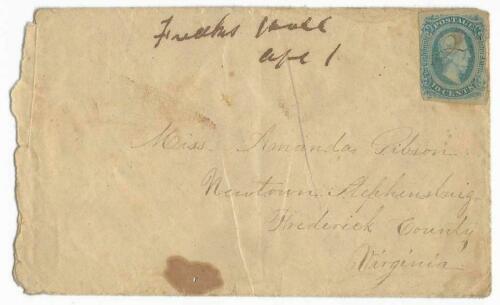 Fredks Hall
Apl 1
POSTAGE
10 CENTS
Miss. Amanda Gibson.
Newtown Stephensburg.
Frederick County
Virginia.